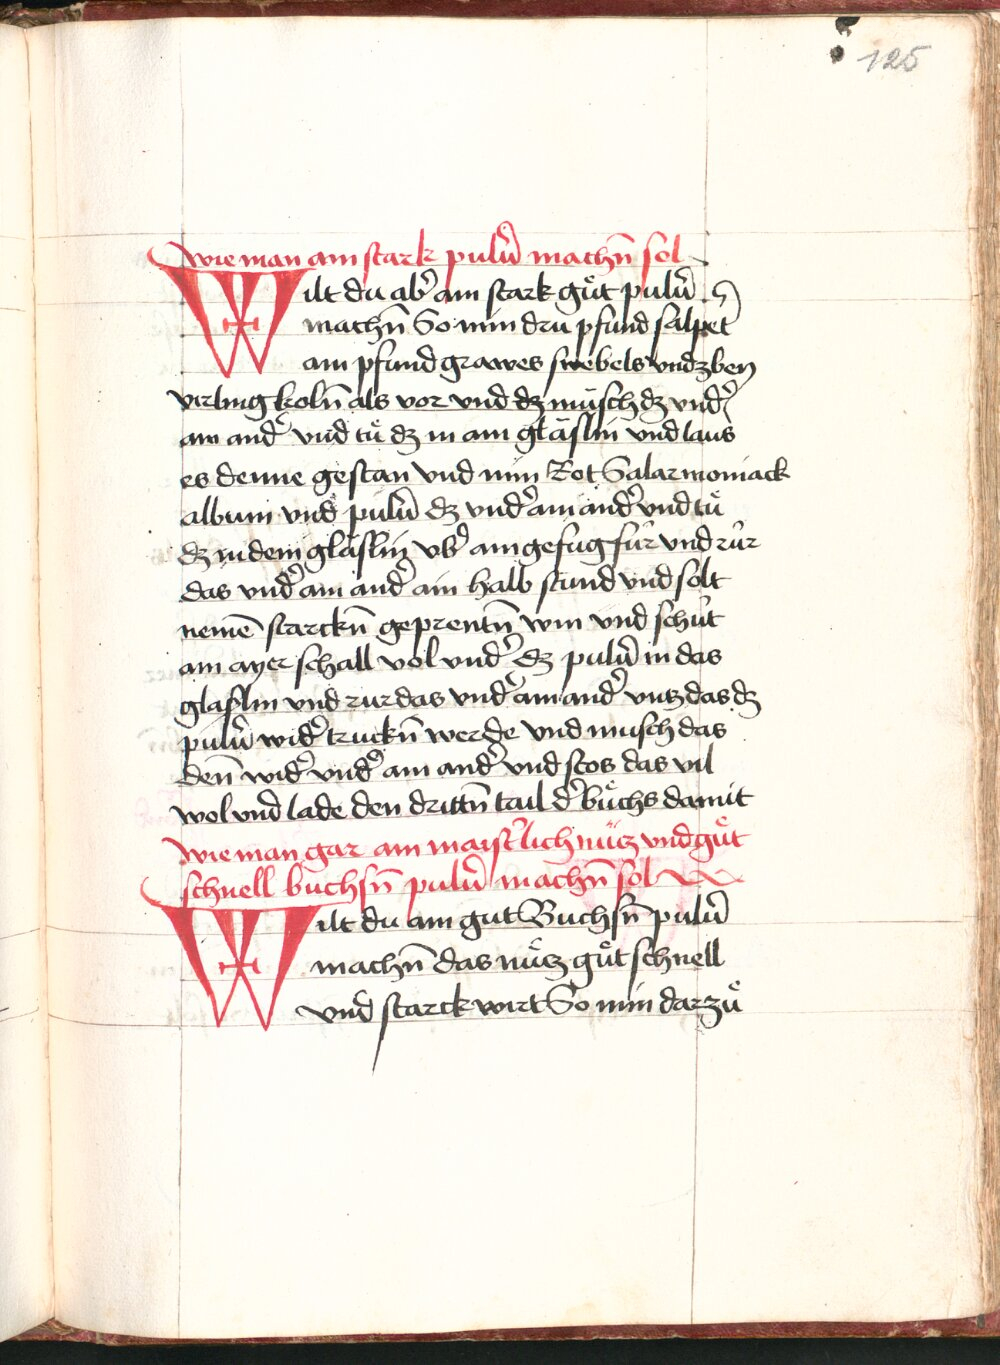 125
wie man ain stark pulủ machn̄ sol
Wilt du ab̉ ain stark gůt pulủ
machn̄ So nim dru pfund salpet̉
ain pfund grawes swebels vnd zben
virling koln̄ als vor vnd dz müsch dz vnd̉
ain and̉ vnd tů dz in ain gläslin vnd laus
es denne gestan vnd nim Rot Salarmoniack
album vnd pulủ dz vnd̉ ain and̉ vnd tů
dz in dem gläslin vb̉ ain gefug für vnd rür
das vnd̉ ain and̉ ain halb stund vnd solt
nemē starckn̄ geprentn̄ win vnd schüt
ain ayer schall vol vnd̉ dz pulủ in das
glaslin vnd rur das vnd̉ ain and̉ vntz das dz
pulủ wid̉ truckn̄ werde vnd musch das
den̄ wid̉ vnd̉ ain and̉ vnd stos das vil
wol vnd lade den drittn̄ tail d̉ bůchs damit
wie man gar ain maist̉lich nücz vnd gůt
schnell buchsn̄ pulủ machn̄ sol
Wilt du ain gut Buchsn̄ pulủ
machn̄ das nücz gůt schnell
vnd starck wirt So nim darzů